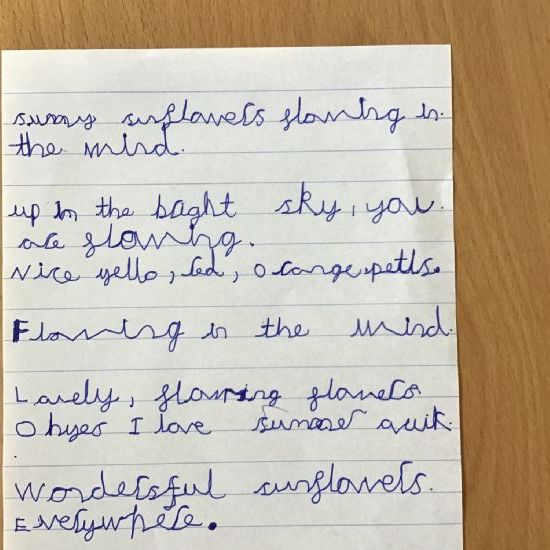 sunny sunflowers flowing in
the mind.
up in the bright sky, you
are flowing.
Nice yello, red, orange petls.
Flowing in the mind.
Lovely, flowing flowers
Oh yes I love summer
Wondersful sunflowers.
Everywhere.